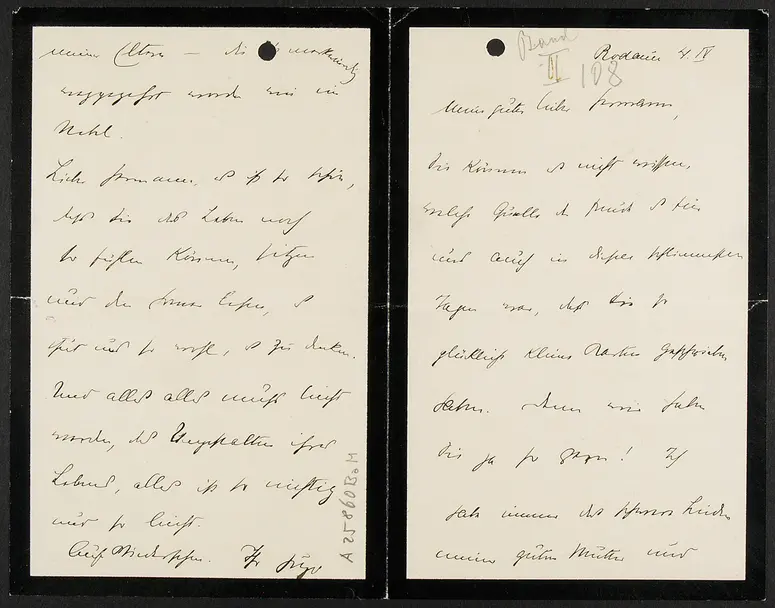 Band
VI 108
Rodaun 4. IV
Mein guter lieber Hermann,
Sie können es nicht wissen,
welche Quelle der Freude es
und auch in diesen schlimmsten
Tagen war, daß Sie so
glücklich kleine Karten geschrieben
haben. Denn wir haben
Sie ja so gern! Ich
habe immer das schwere Leiden
meiner guten Mutter und
meiner Eltern — die merkwürdig
worden wie ein
Lieber Hermann, es ist so schön,
daß Sie das Leben noch
so fühlen können, sitzen
und den Homer lesen, es
tut uns so wohl, es zu denken.
Und alles alles muß leicht
werden, das Umgestalten
Lebens, alles ist so nichtig
und so leicht.
Auf Wiedersehen. Ihr Hugo
A 25860 BaM